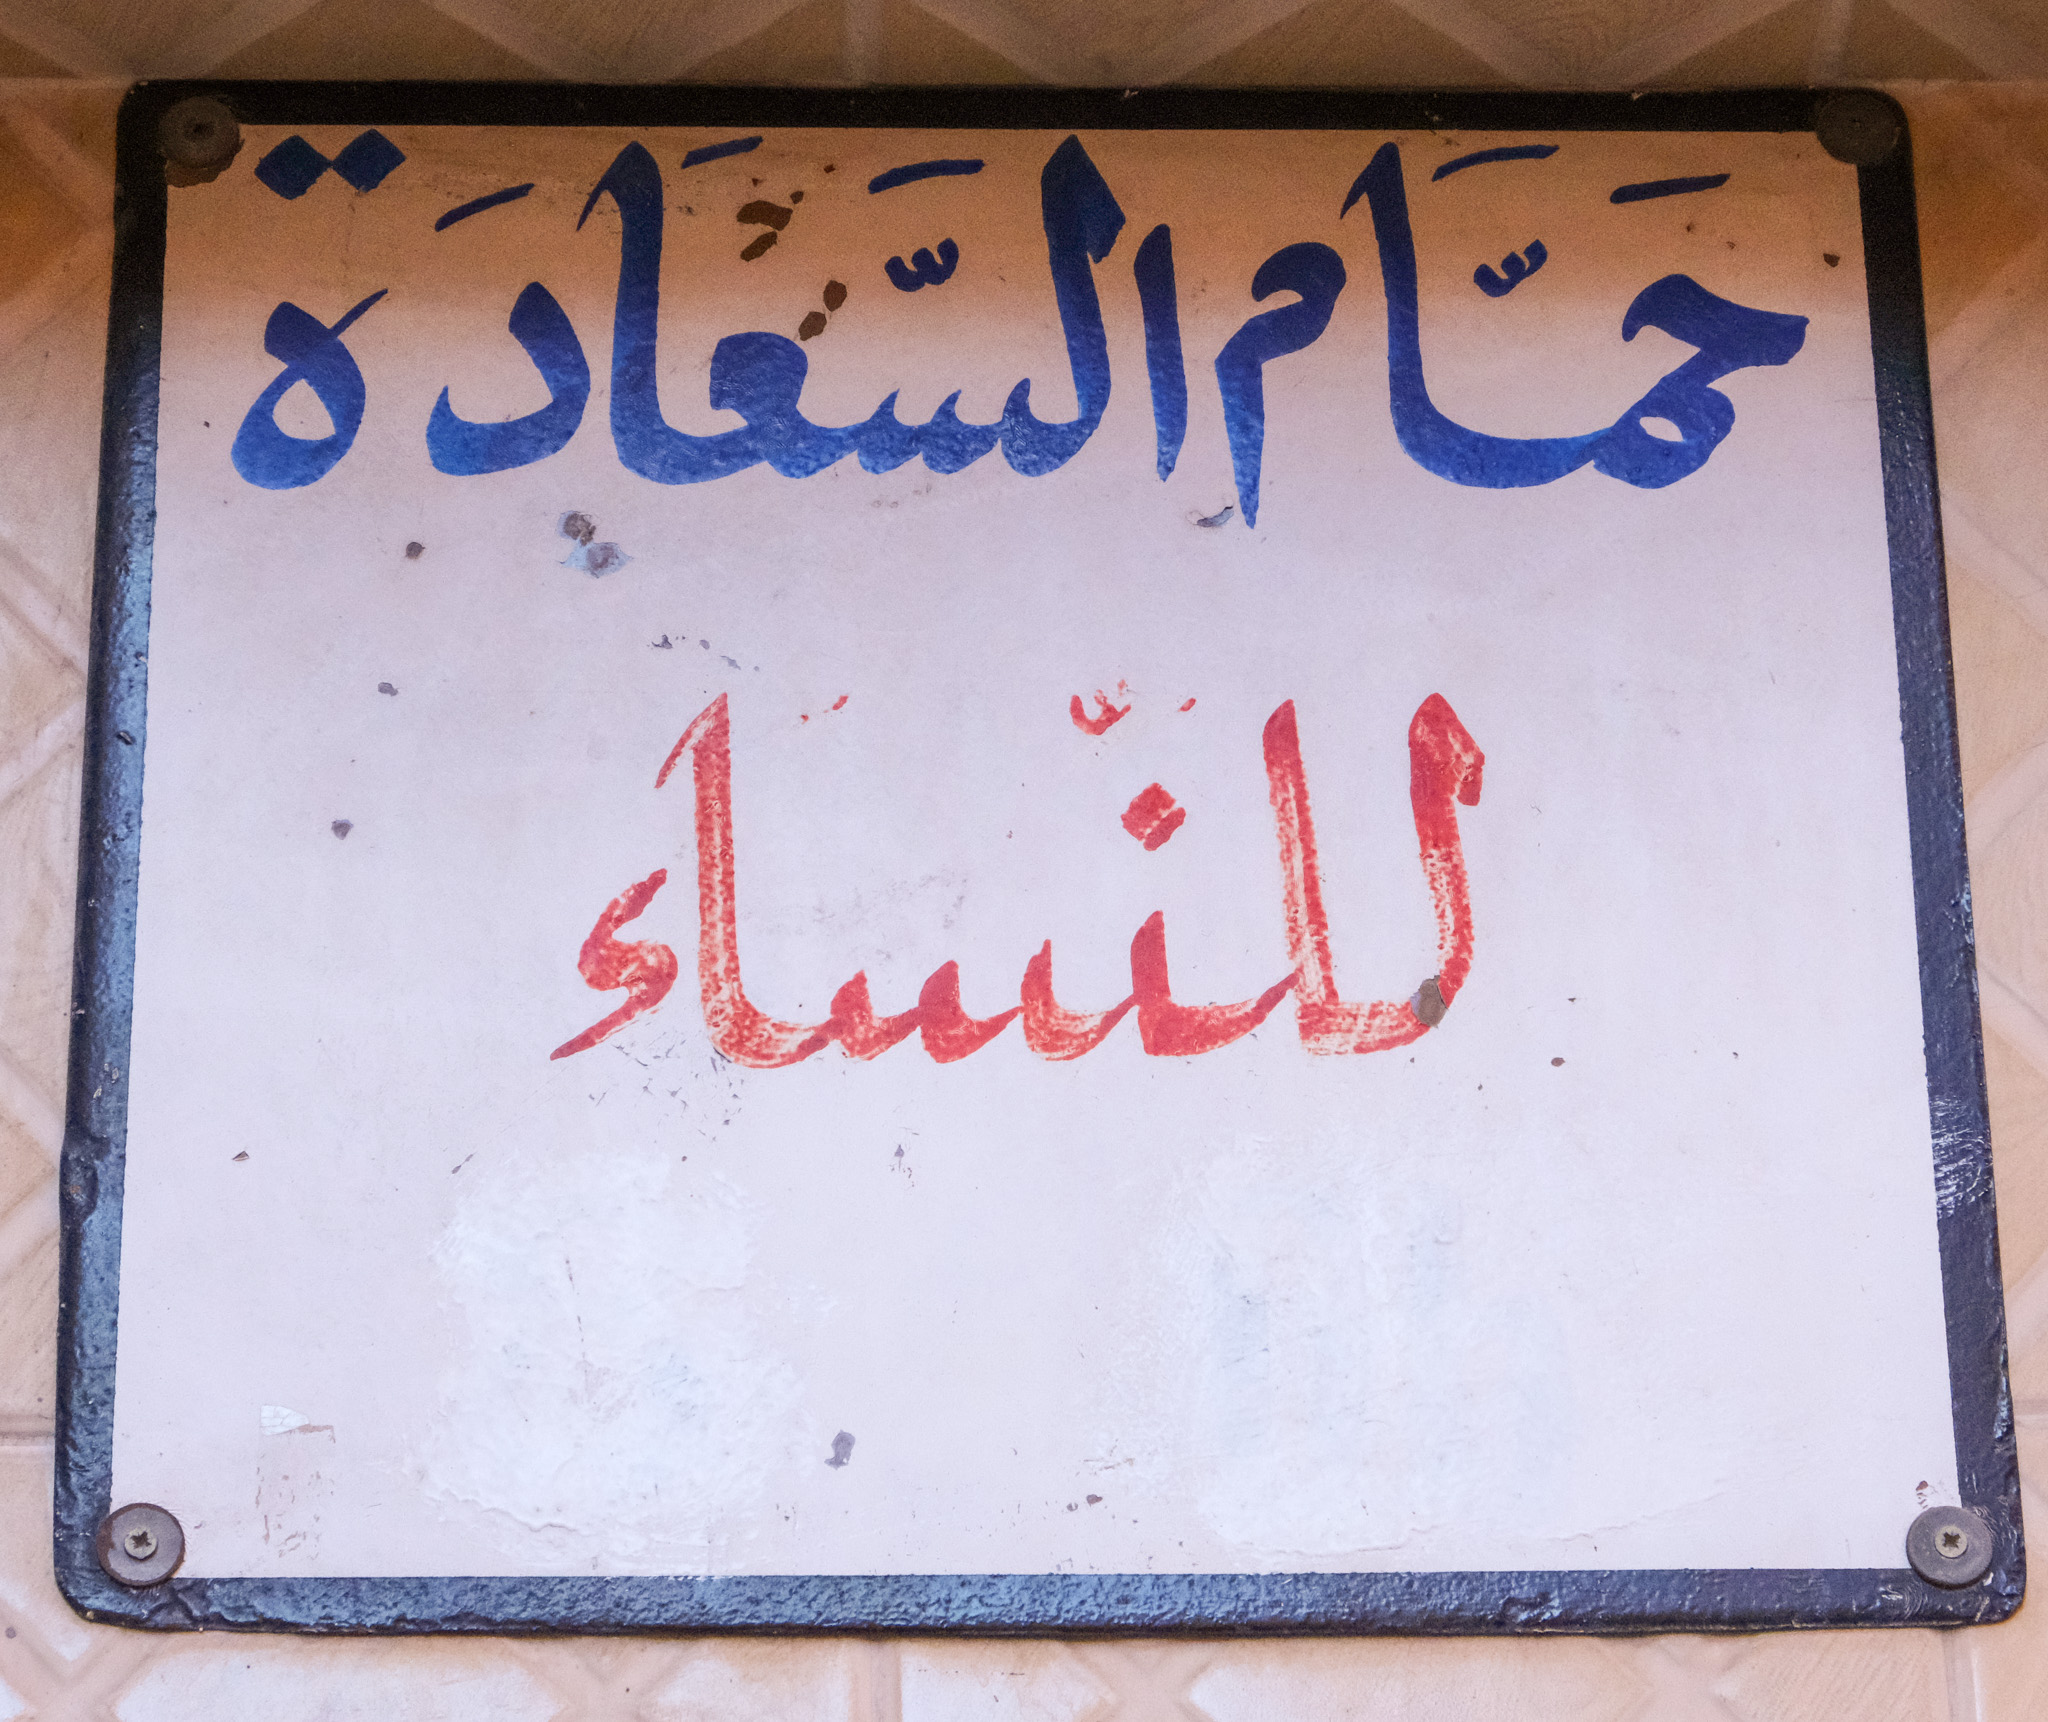 حَمَّام السَّعَادَة
للنِّسَاء